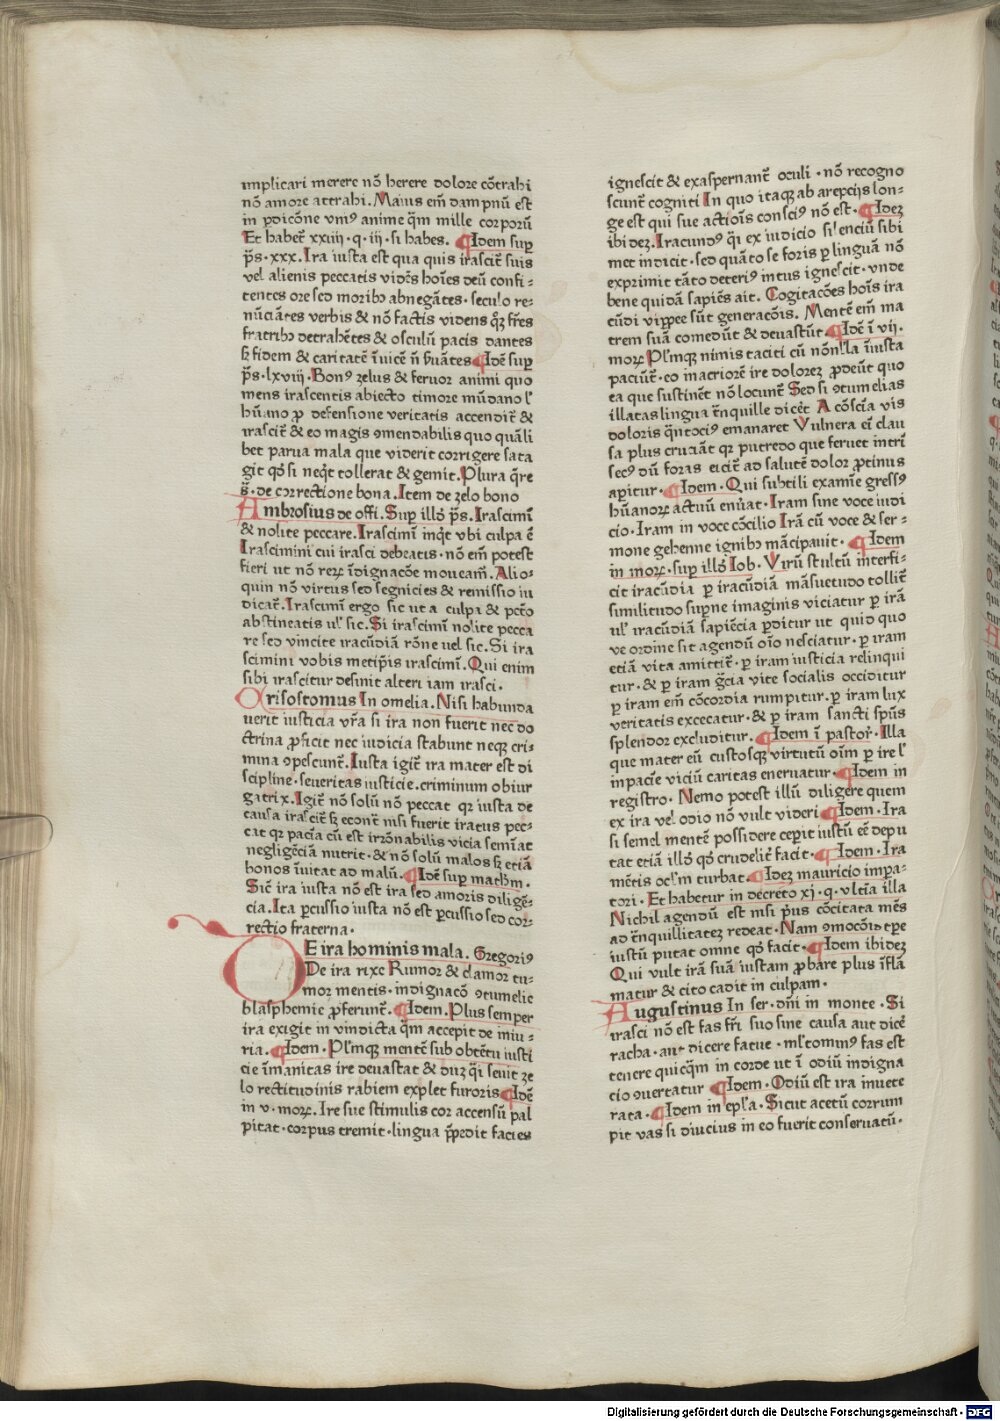 implicari merere nō herere dolore cōtrahi
nō amore attrahi. Maius em̄ dampnū est
in pdicōne vniꝰ anime q̄m mille corporū
Et habet᷑ xxiiij · q · iij · si habes. ¶Idem sup
p̄s · xxx. Ira iusta est qua quis irascit᷑ suis
vel alienis peccatis vidēs hoīes deū confi-
tentes ore sed moribꝰ abnegātes · seculo re-
nūciātes verbis & nō factis videns qꝫ fr̄es
fratribꝰ detrahētes & osculū pacis dantes
sꝫ fidem & caritatē īuicē n̄ ẜuātes ¶Idē sup
p̄s · lxviij · Bonꝰ zelus & feruor animi quo
mens irascentis abiecto timore mūdano l'
hūano ꝓ defensione veritatis accendit᷑ &
irascit᷑ & eo magis ꝯmendabilis quo quāli
bet parua mala que viderit corrigere sata
git qd̄ si neqt tollerat & gemit. Plura q̄re
s̄ · de correctione bona. Item de zelo bono
Ambrosius de offi. Sup illd̄ p̄s. Irascimī
& nolite peccare. Irascimī inqt vbi culpa ē
Irascimini cui irasci debeatis · nō em̄ potest
fieri ut nō reꝝ īdignacōe moueam̄. Alio-
quin nō virtus sed segnicies & remissio iu
dicat᷑. Irascimī ergo sic ut a culpa & pctō
abstineatis ul' sic. Si irascimī nolite pecca
re sed vincite iracūdiā rōne uel sic. Si ira
scimini vobis metip̄is irascimī. Qui enim
sibi irascitur desinit alteri iam irasci.
Crisostomus In omelia. Nisi habunda
uerit iusticia vr̄a si ira non fuerit nec do
ctrina ꝓficit nec iudicia stabunt neqꝫ cri-
mina ꝯpescunt᷑. Iusta igit᷑ ira mater est di
scipline · seueritas iusticie. criminum obiur
gatrix. Igit᷑ nō solū nō peccat qꝛ iusta de
causa irascit᷑ sꝫ econt᷑ nisi fuerit iratus pec-
cat qꝛ pacīa cū est irrōnabilis vicia semīat
negligēciā nutrit · & nō solū malos sꝫ etiā
bonos īuitat ad malū. ¶Idē sup math̄m ·
Sic̄ ira iusta nō est ira sed amoris diligē-
cia. Ita pcussio iusta nō est pcussio sed cor-
rectio fraterna ·
DE ira hominis mala. Gregoriꝰ
De ira rixe Rumor & clamor tu-
mor mentis · indignacō ꝯtumelie
blasphemie ꝓferunt᷑. ¶Idem. Plus semper
ira exigit in vindicta q̄m accepit de iniu-
ria. ¶Idem · Pl'mqꝫ mentē sub obtētu iusti
cie īmanitas ire deuastat & duꝫ qi seuit ze
lo rectitudinis rabiem explet furoris ¶Idē
in v · moꝝ. Ire sue stimulis cor accensū pal
pitat · corpus tremit · lingua p̄pedit facies
ignescit & exaspernant᷑ oculi · nō recogno
scunt᷑ cogniti In quo itaqꝫ ab arepcijs lon-
ge est qui sue actiōis consciꝰ nō est · ¶Idez
ibidez. Iracundꝰ qi ex iudicio silenciū sibi
met indicit · sed quāto se foris p linguā nō
exprimit tāto deteriꝰ intus ignescit · vnde
bene quidā sapiēs ait. Cogitacōes hoīs ira
cūdi vippee sūt generacōis. Mentē em̄ ma
trem suā comedūt & deuastūt ¶Idē ī vij.
moꝝ Pl'mqꝫ nimis taciti cū nōnlla īiusta
paciūt᷑ · eo macriorē ire dolorez ꝓdeūt quo
ea que sustinēt nō locunt᷑ Sed si ꝯtumelias
illatas lingua t᷑nquille dicet᷑ A cōscīa vis
doloris q̄ntociꝰ emanaret Vulnera eī clau
sa plus cruciāt qꝛ putredo que feruet intrī
secꝰ dū foras eicit᷑ ad salutē dolor ꝓtinus
apitur · ¶Idem · Qui subtili examīe gressꝰ
hūanoꝝ actuū enuat · Iram sine voce iudi
cio · Iram in voce cōcilio Irā cū voce & ser-
mone gehenne ignibꝰ mācipauit · ¶Idem
in moꝝ · sup illd̄ Iob. Virū stultū interfi-
cit iracūdia p iracūdiā māsuetudo tollit᷑
similitudo supne imaginis viciatur p irā
ul' iracūdiā sapiēcia pditur ut quid quo
ve ordine sit agendū oīo nesciatur · p iram
etiā vita amittit᷑ · p iram iusticia relinqui
tur · & p iram gr̄cia vite socialis occiditur
p iram em̄ cōcordia rumpitur. p iram lux
veritatis excecatur · & p iram sancti spūs
splendor excluditur. ¶Idem ī pastor̄ · Illa
que mater eū custosqꝫ virtutū oīm p ire l'
inpacīe viciū caritas eneruatur · ¶Idem in
registro · Nemo potest illū diligere quem
ex ira vel odio nō vult videri ¶Idem · Ira
si semel mentē possidere ceperit iustū eē depu
tat etiā illd̄ qd̄ crudelit᷑ facit · ¶Idem · Ira
mētis ocl'm turbat · ¶Idez mauricio impa-
tori · Et habetur in decreto xj · q · vltīa illa
Nichil agendū est nisi pius cōcitata mēs
ad t᷑nquillitatez redeat · Nam ꝯmocōis tpe
iustū putat omne qd̄ facit · ¶Idem ibidez
Qui vult irā suā iustam ꝓbare plus īflā
matur & cito cadit in culpam ·
Augustinus In ser · dn̄i in monte · Si
irasci nō est fas fr̄i suo sine causa aut dicē
racha · aut dicere fatue · ml'tominꝰ fas est
tenere quicq̄m in corde ut ī odiū indigna
cio ꝯuertatur ¶Idem · Odiū est ira inuete
rata · ¶Idem in epl'a · Sicut acetū corrum
pit vas si diucius in eo fuerit conseruatū ·
Digitalisierung gefördert durch die Deutsche Forschungsgemeinschaft - DFG